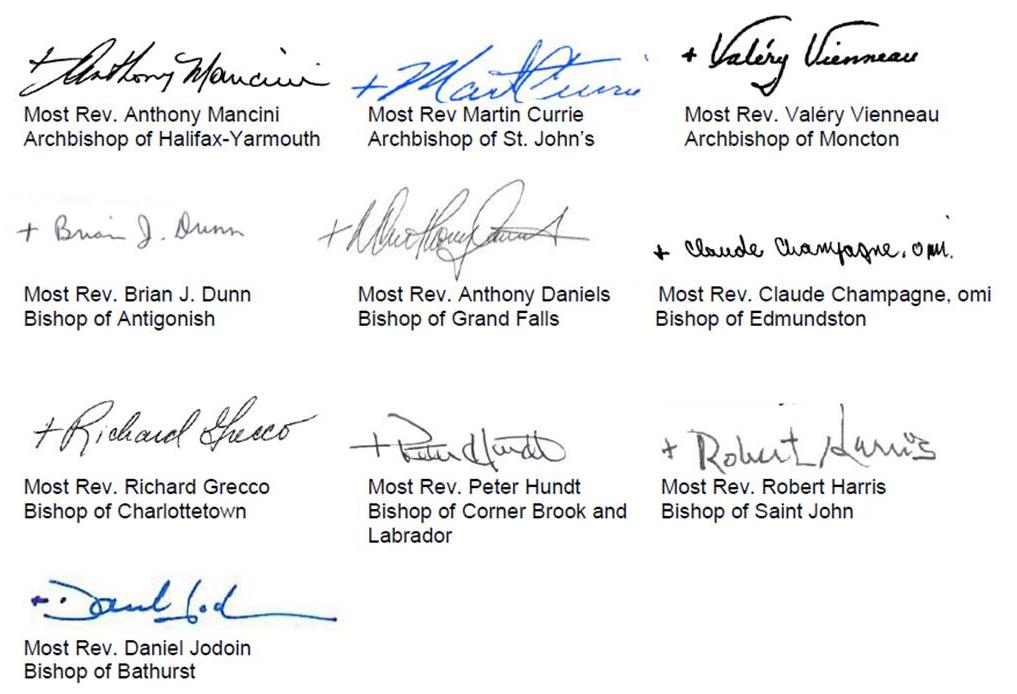 + Anthony Mancini
Most Rev. Anthony Mancini
Archbishop of Halifax-Yarmouth
+ Mart Currie
Most Rev Martin Currie
Archbishop of St. John's
+ Valéry Vienneau
Most Rev. Valéry Vienneau
Archbishop of Moncton
+ Brian J. Dunn
Most Rev. Brian J. Dunn
Bishop of Antigonish
+ Anthony Daniels
Most Rev. Anthony Daniels
Bishop of Grand Falls
+ Claude Champagne, omi.
Most Rev. Claude Champagne, omi
Bishop of Edmundston
+ Richard Grecco
Most Rev. Richard Grecco
Bishop of Charlottetown
+ Peter Hundt
Most Rev. Peter Hundt
Bishop of Corner Brook and
Labrador
+ Robert Harris
Most Rev. Robert Harris
Bishop of Saint John
Most Rev. Daniel Jodoin
Bishop of Bathurst